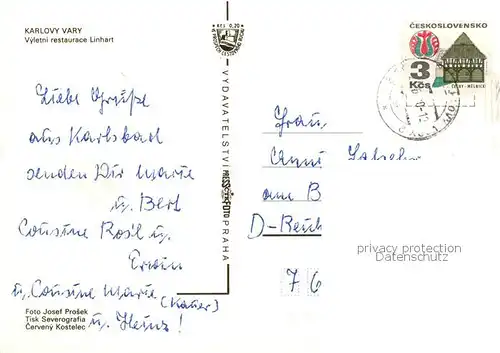 KARLOVY VARY
Výletní restaurace Linhart
Liebe Grüße
aus Karlsbad
senden Dir Marie
u. Bert
Cousine Rosl u.
Erwin
u. Cousine Marie (Kauer)
u. Heinz!
Foto Josef Prošek
Tisk Severografia
Červený Kostelec
VYDAVATELSTVÍ PRESSFOTO PRAHA
ČESKOSLOVENSKO
3
Kčs
ČECHY - MĚLNICKO
Frau
Anni
am B
D-
privacy protection
Datenschutz
76